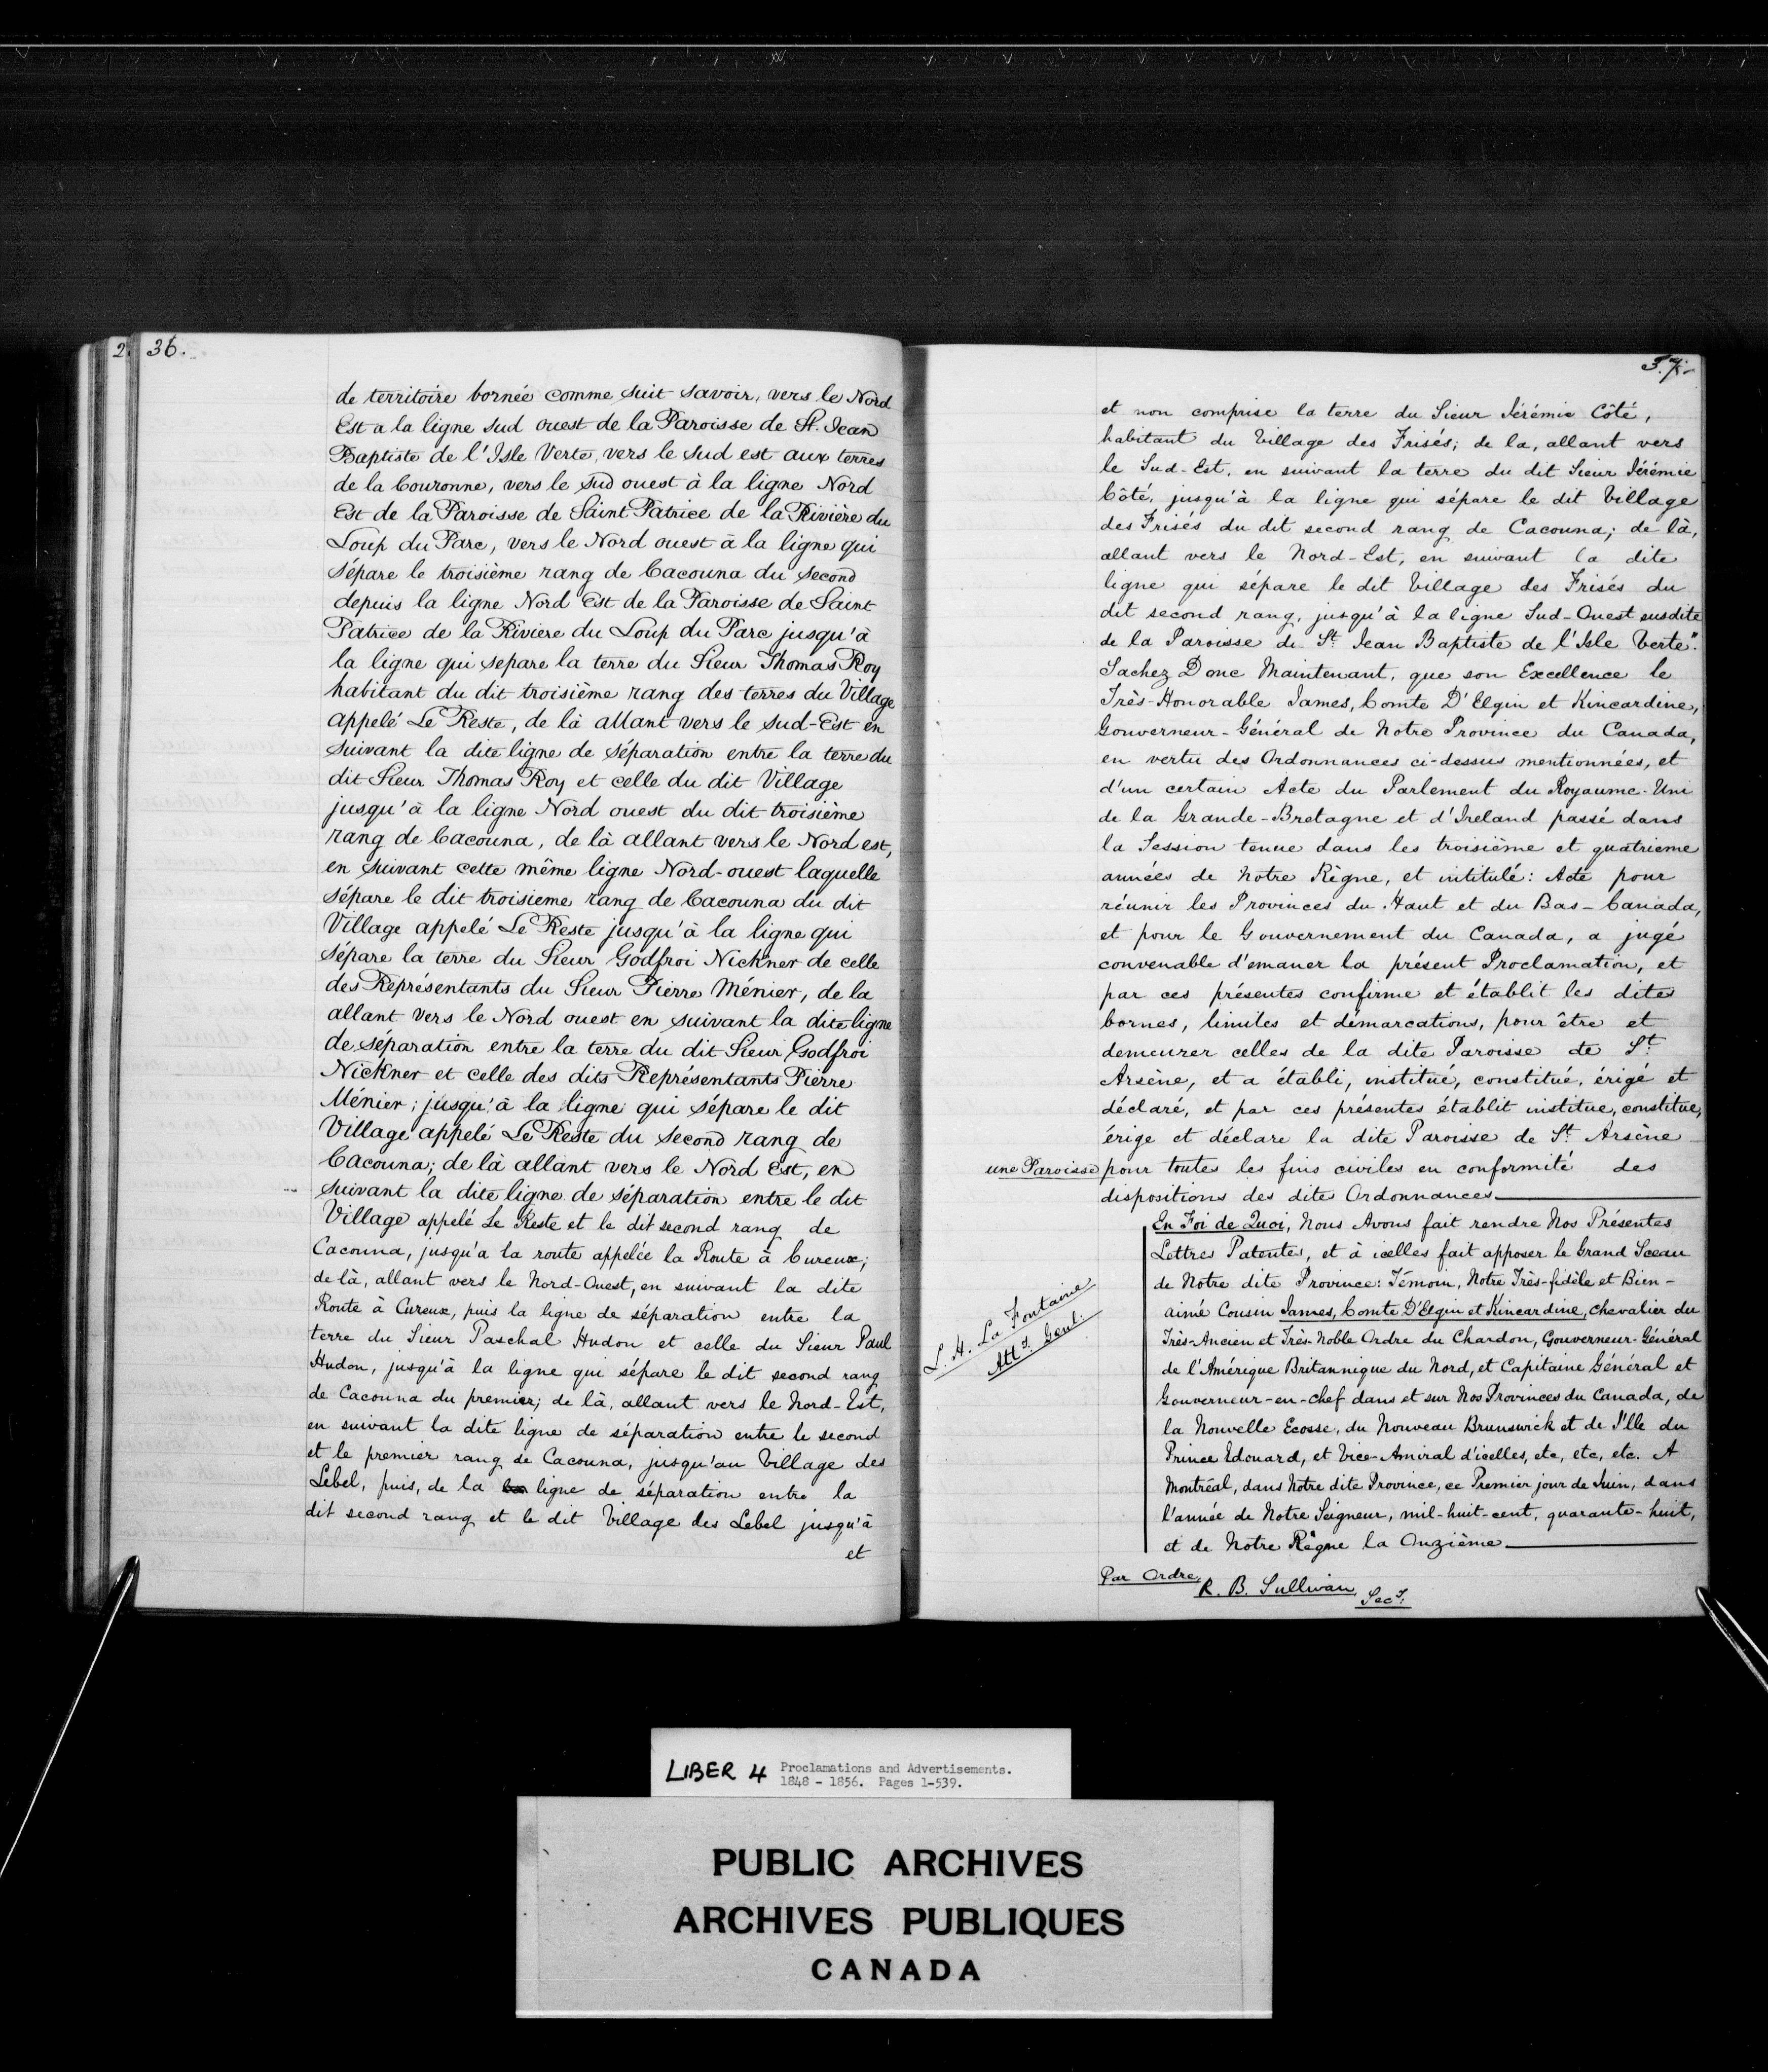 2
36.
de territoire bornée comme suit savoir, vers le Nord
Est a la ligne sud ouest de la Paroisse de St. Jean
Baptiste de l'Isle Verte, vers le sud est aux terres
de la Couronne, vers le sud ouest à la ligne Nord
Est de la Paroisse de Saint Patrice de la Rivière du
Loup du Parc, vers le Nord ouest à la ligne qui
sépare le troisième rang de Cacouna du second
depuis la ligne Nord Est de la Paroisse de Saint
Patrice de la Riviere du Loup du Parc jusqu'à
la ligne qui separe la terre du Sieur Thomas Roy
habitant du dit troisième rang des terres du Village
appelé Le Reste, de là allant vers le sud-Est en
suivant la dite ligne de séparation entre la terre du
dit Sieur Thomas Roy et celle du dit Village
jusqu'à la ligne Nord ouest du dit troisième
rang de Cacouna, de là allant vers le Nord est,
en suivant cette même ligne Nord-ouest laquelle
sépare le dit troisieme rang de Cacouna du dit
Village appelé Le Reste jusqu'à la ligne qui
sépare la terre du Sieur Godfroi Nickner de celle
des Représentants du Sieur Pierre Ménier, de la
allant vers le Nord ouest en suivant la dite ligne
de séparation entre la terre du dit Sieur Godfroi
Nickner et celle des dits Représentants Pierre
Ménier; jusqu'à la ligne qui sépare le dit
Village appelé Le Reste du second rang de
Cacouna; de là allant vers le Nord Est, en
suivant la dite ligne de séparation entre le dit
Village appelé Le Reste et le dit second rang de
Cacouna, jusqu'a la route appelée la Route à Cureux;
de là, allant vers le Nord-Ouest, en suivant la dite
Route à Cureux, puis la ligne de séparation entre la
terre du Sieur Paschal Hudon et celle du Sieur Paul
Hudon, jusqu'à la ligne qui sépare le dit second rang
de Cacouna du premier; de là, allant vers le Nord-Est,
en suivant la dite ligne de séparation entre le second
et le premier rang de Cacouna, jusqu'au Village des
Lebel, puis, de la ligne de séparation entre la
dit second rang et le dit Village des Lebel jusqu'à
et
37.
et non comprise la terre du Sieur Jérémie Côté,
habitant du Village des Frisés; de la, allant vers
le Sud-Est, en suivant la terre du dit Sieur Jérémie
Côté, jusqu'à la ligne qui sépare le dit Village
des Frisés du dit second rang de Cacouna; de là,
allant vers le Nord-Est, en suivant la dite
ligne qui sépare le dit Village des Frisés du
dit second rang, jusqu'à la ligne Sud-Ouest susdite
de la Paroisse de St. Jean Baptiste de l'Isle Verte".
Sachez Donc Maintenant, que son Excellence le
Très-Honorable James, Comte D'Elgin et Kincardine,
Gouverneur-Général de Notre Province du Canada,
en vertu des Ordonnances ci-dessus mentionnées, et
d'un certain Acte du Parlement du Royaume-Uni
de la Grande-Bretagne et d'Ireland passé dans
la Session tenue dans les troisième et quatrieme
années de Notre Règne, et intitulé: Acte pour
réunir les Provinces du Haut et du Bas-Canada,
et pour le Gouvernement du Canada, a jugé
convenable d'emaner la présent Proclamation, et
par ces présentes confirme et établit les dites
bornes, limites et démarcations, pour être et
demeurer celles de la dite Paroisse de St.
Arsène, et a établi, institué, constitué, érigé et
déclaré, et par ces présentes établit institue, constitue,
érige et déclare la dite Paroisse de St. Arsène
une Paroisse pour toutes les fins civiles en conformité des
dispositions des dites Ordonnances
En Foi de Quoi, Nous Avons fait rendre Nos Présentes
Lettres Patentes, et à icelles fait apposer le Grand Sceau
de Notre dite Province: Témoin, Notre Très-fidèle et Bien-
aimé Cousin James, Comte D'Elgin et Kincardine, Chevalier du
Très-Ancien et Très-Noble Ordre du Chardon, Gouverneur-Général
de l'Amérique Britannique du Nord, et Capitaine Général et
Gouverneur-en-chef dans et sur Nos Provinces du Canada, de
la Nouvelle Ecosse, du Nouveau Brunswick et de l'Ile du
Prince Edouard, et Vice-Amiral d'icelles, etc, etc, etc. A
Montréal, dans Notre dite Province, ce Premier jour de Juin, dans
l'année de Notre Seigneur, mil-huit-cent, quarante-huit,
et de Notre Règne la Onzième
L. H. La Fontaine
Atty. Genl.
Par Ordre,
R. B. Sullivan,
Secy.
LIBER 4 Proclamations and Advertisements.
1848 - 1856. Pages 1-539.
PUBLIC ARCHIVES
ARCHIVES PUBLIQUES
CANADA